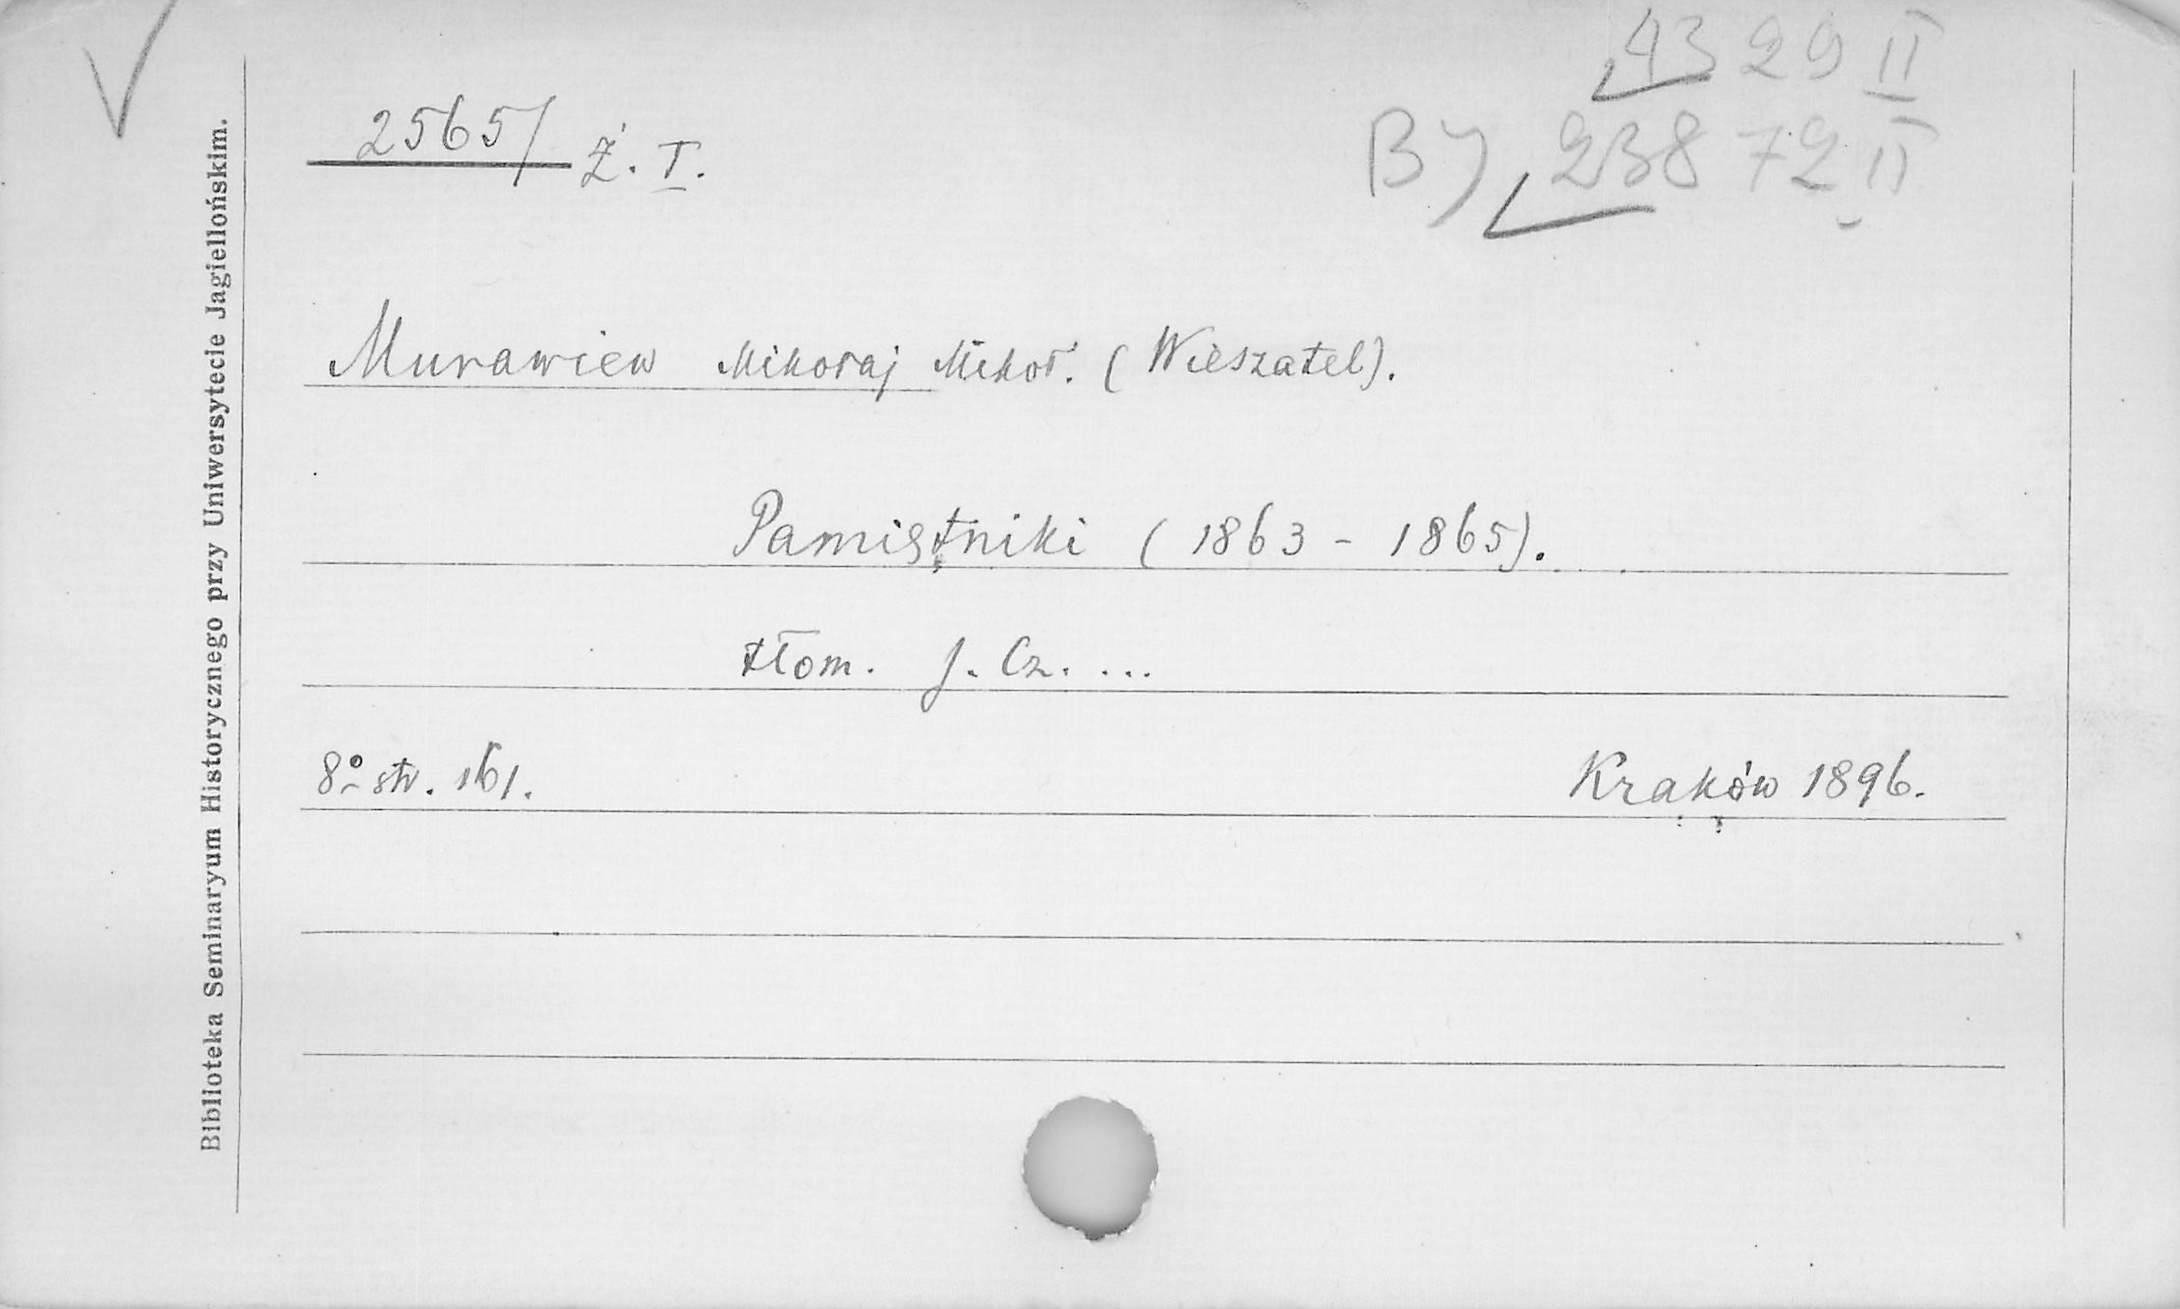 4329 II
2565/ Ż. I.
B) 23872 II
Murawiew Mikołaj Mikoł. (Wieszatel).
Pamiętniki (1863 - 1865).
tłom. J. Cz. ...
8º str. 161.
Kraków 1896.
Biblioteka Seminaryum Historycznego przy Uniwersytecie Jagiellońskim.